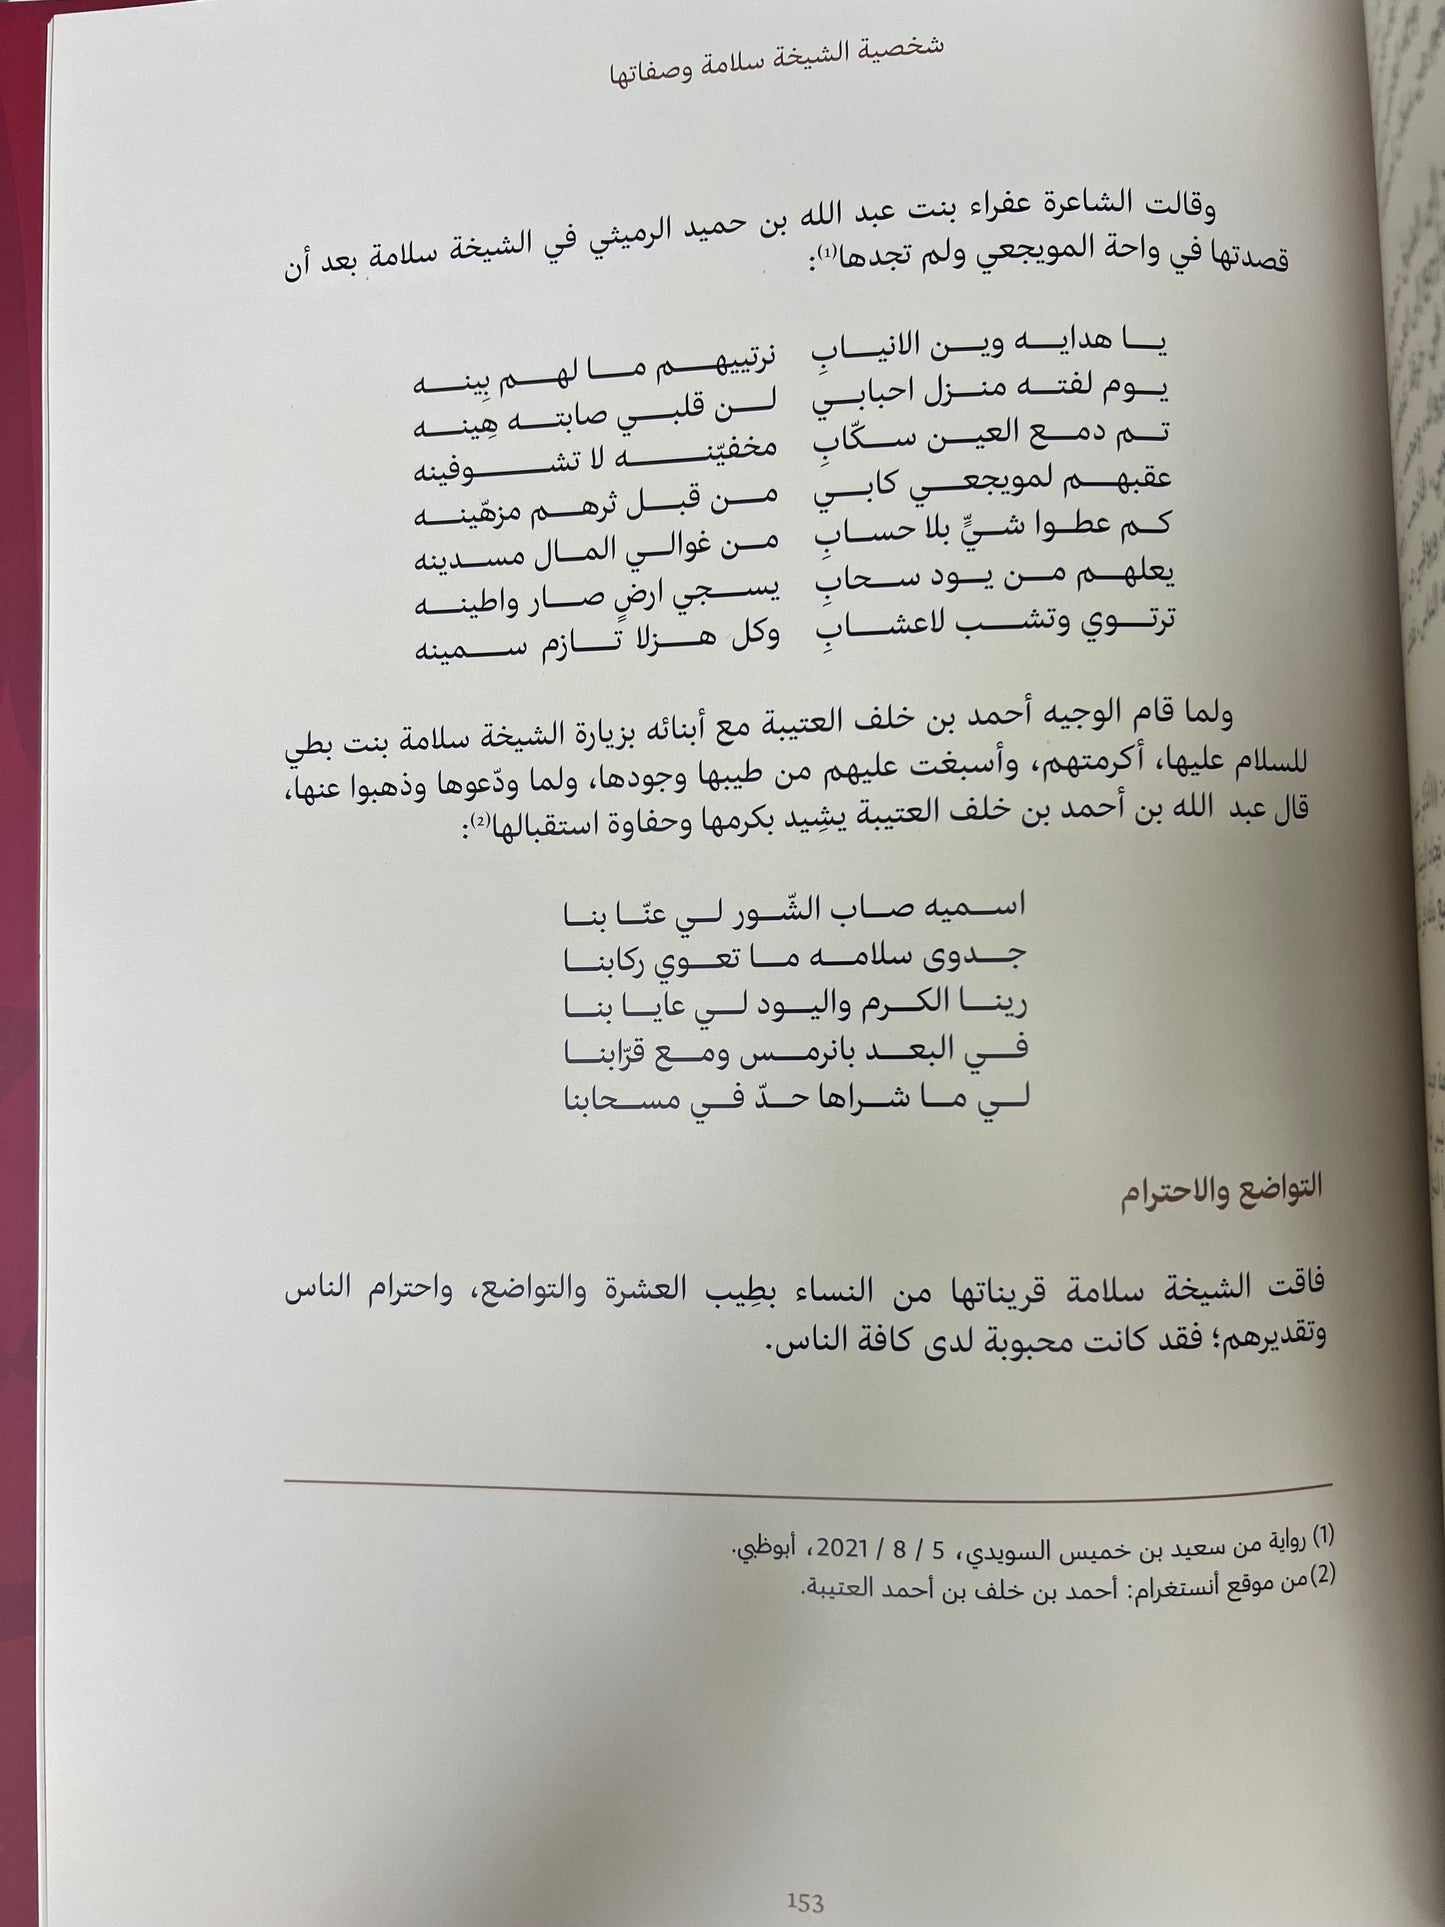 شخصية الشيخة سلامة وصفاتها
وقالت الشاعرة عفراء بنت عبد الله بن حميد الرميثي في الشيخة سلامة بعد أن
قصدتها في واحة المويجعي ولم تجدها(1):
يا هدايه وين الانيابِ نرتييهم ما لهم بِينه
يوم لفته منزل احبابي لن قلبي صابته هِينه
تم دمع العين سكّابِ مخفيّنه لا تشوفينه
عقبهم لمويجعي كابي من قبل ثرهم مزهّينه
كم عطوا شيٍّ بلا حسابِ من غوالي المال مسدينه
يعلهم من يود سحابِ يسجي ارضٍ صار واطينه
ترتوي وتشب لاعشابِ وكل هزلا تازم سمينه
ولما قام الوجيه أحمد بن خلف العتيبة مع أبنائه بزيارة الشيخة سلامة بنت بطي
للسلام عليها، أكرمتهم، وأسبغت عليهم من طيبها وجودها، ولما ودّعوها وذهبوا عنها،
قال عبد الله بن أحمد بن خلف العتيبة يشِيد بكرمها وحفاوة استقبالها(2):
اسميه صاب الشّور لي عنّا بنا
جدوى سلامه ما تعوي ركابنا
رينا الكرم واليود لي عايا بنا
في البعد بانرمس ومع قرّابنا
لي ما شراها حدّ في مسحابنا
التواضع والاحترام
فاقت الشيخة سلامة قريناتها من النساء بطِيب العشرة والتواضع، واحترام الناس
وتقديرهم؛ فقد كانت محبوبة لدى كافة الناس.
(1) رواية من سعيد بن خميس السويدي، 5 / 8 / 2021، أبوظبي.
(2)من موقع أنستغرام: أحمد بن خلف بن أحمد العتيبة.
153